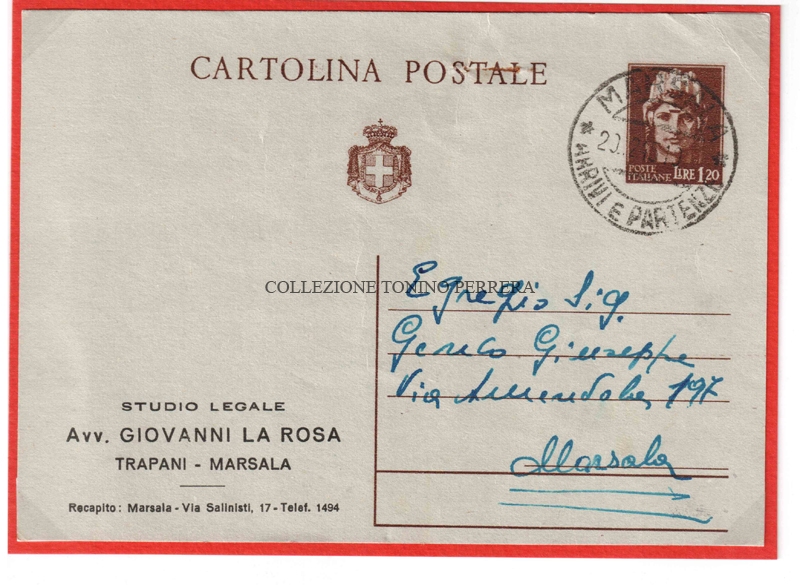 CARTOLINA POSTALE
POSTE
ITALIANE
LIRE 1,20
ARRIVI E PARTENZE
COLLEZIONE TONINO PERRERA
Egregio Sig.
Genco Giuseppe
Via Amendola, 197
Marsala
STUDIO LEGALE
Avv. GIOVANNI LA ROSA
TRAPANI - MARSALA
Recapito: Marsala - Via Salinisti, 17 - Telef. 1494